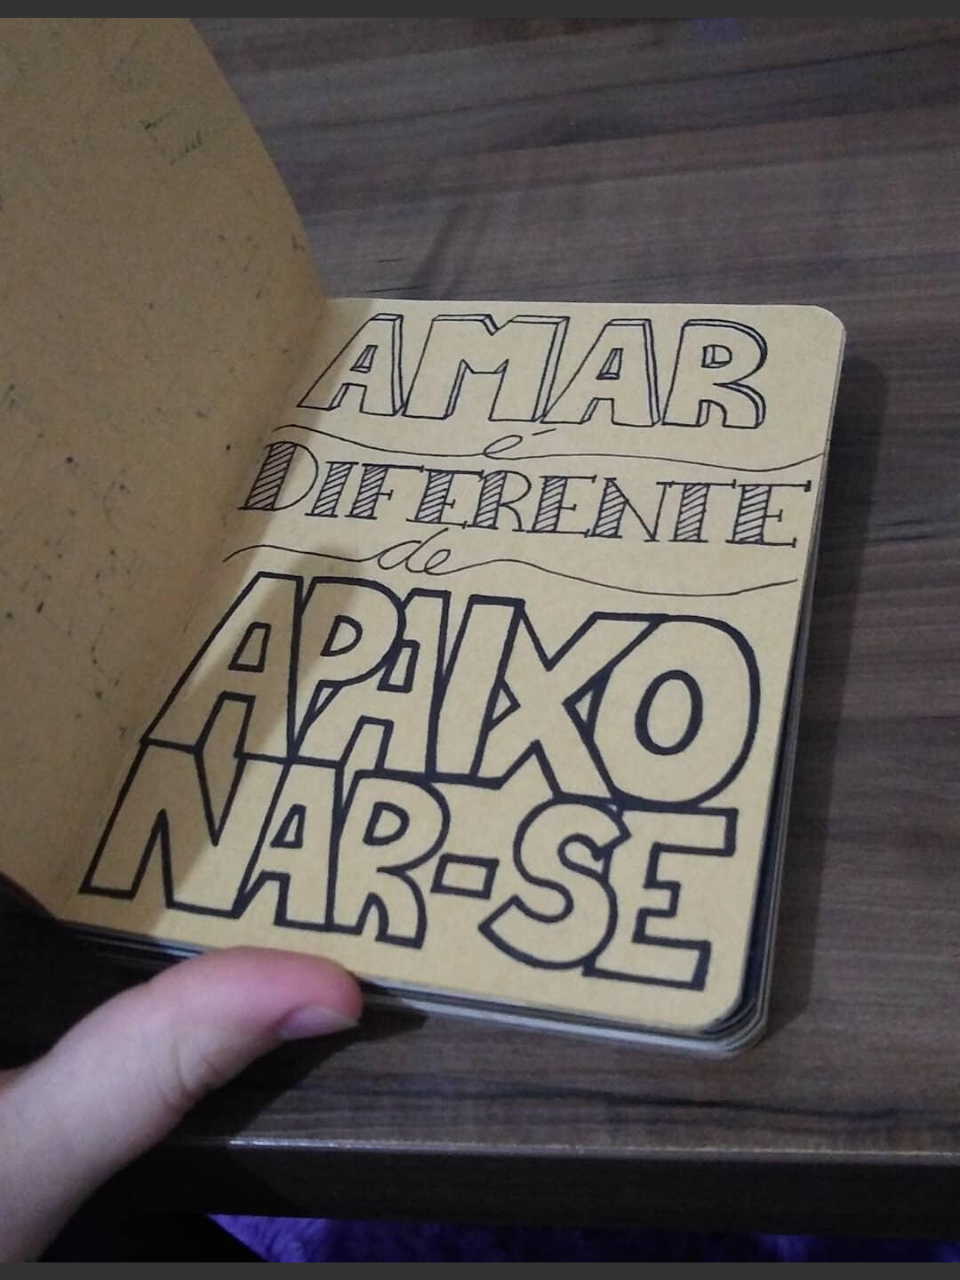 AMAR
é
DIFERENTE
de
APAIXO
NAR-SE